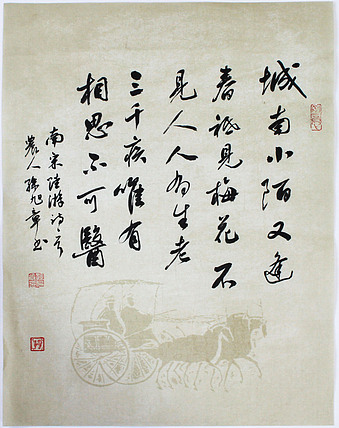 城南小陌又逢
春祗見梅花不
見人人為生老
三千疾唯有
相思不可醫
南宋陸游詩
農人孫旭章书